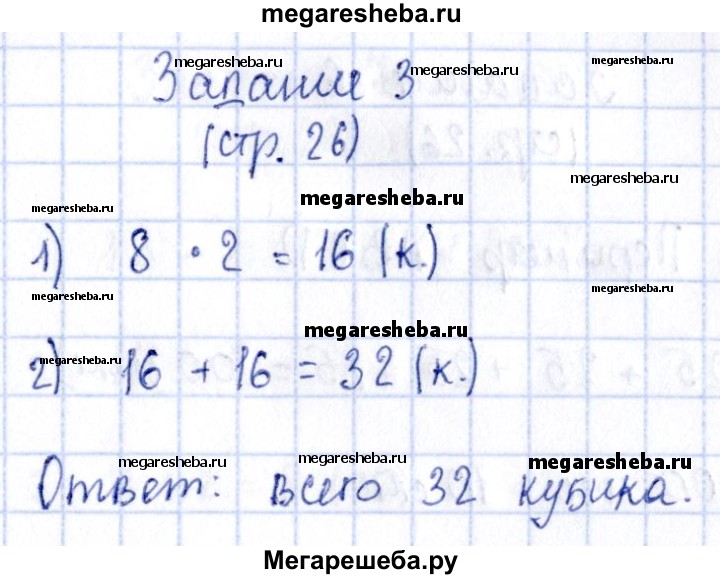 megaresheba.ru
megaresheba.ru
megaresheba.ru
Задание 3
megaresheba.ru
(стр. 26)
megaresheba.ru
megaresheba.ru
megaresheba.ru
1) 8 · 2 = 16 (к.)
megaresheba.ru
megaresheba.ru
megaresheba.ru
megaresheba.ru
2) 16 + 16 = 32 (к.)
megaresheba.ru
megaresheba.ru
megaresheba.ru
Ответ: всего 32 кубика.
Мегарешеба.ру